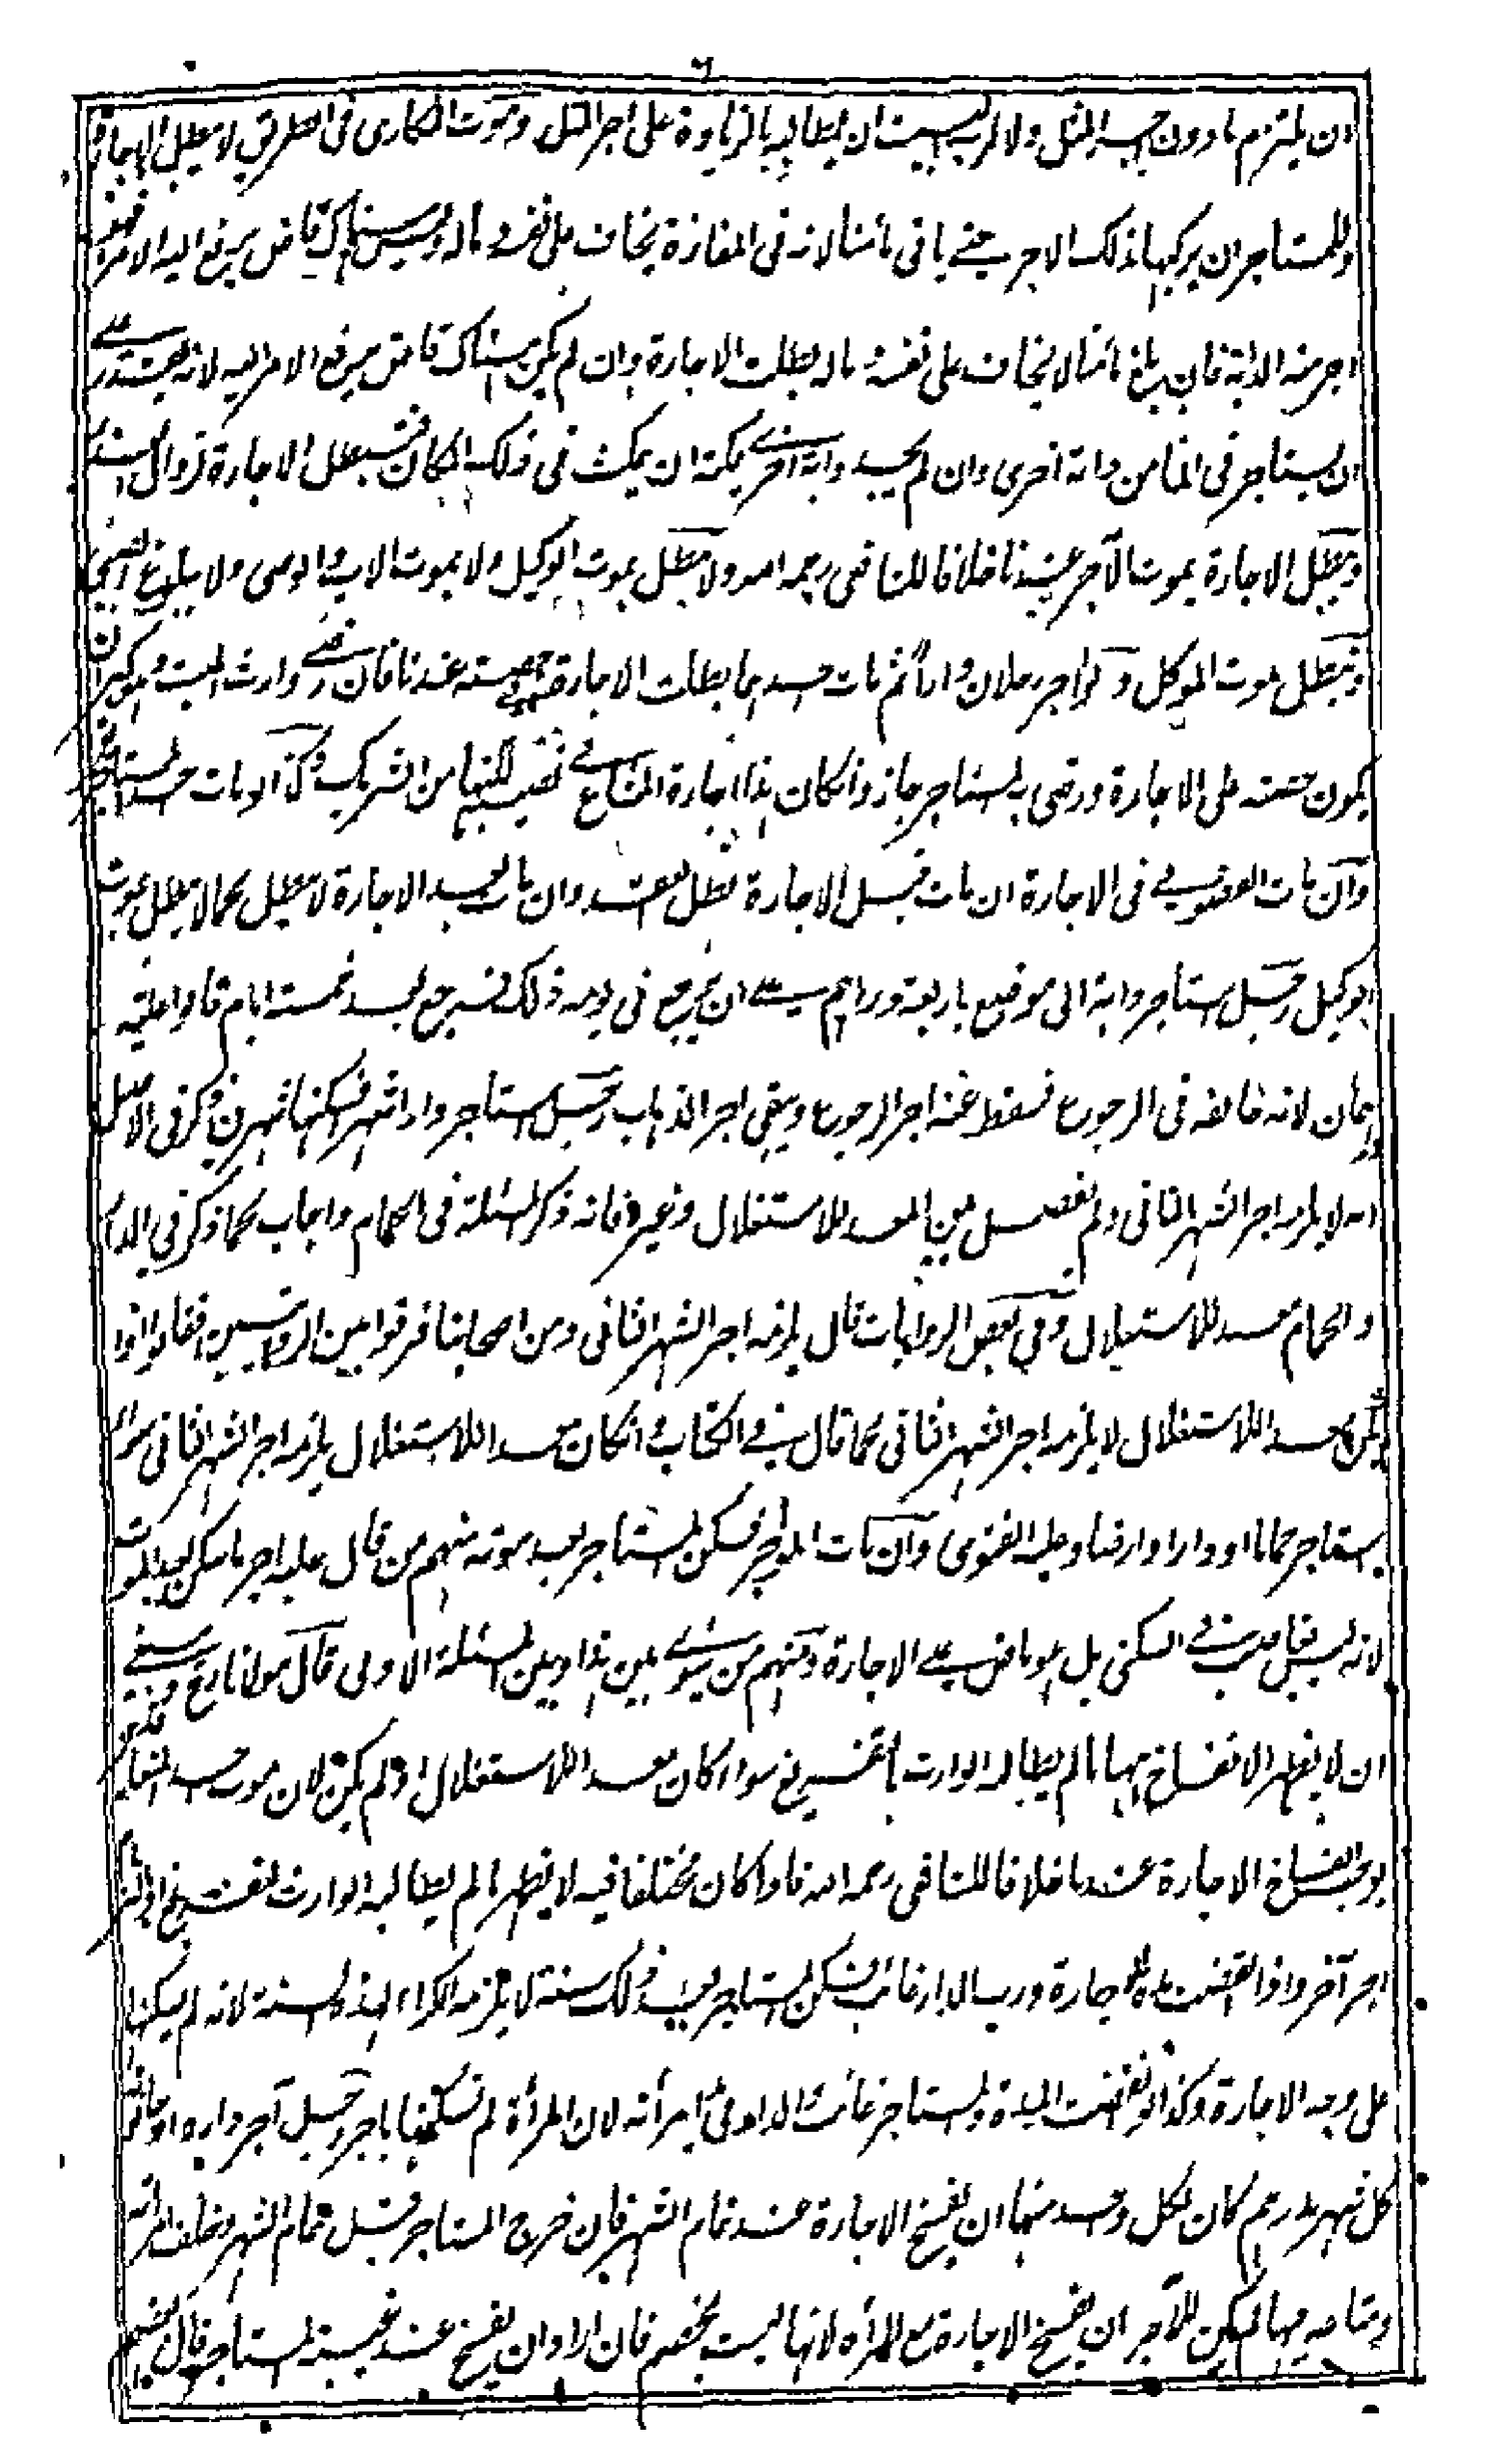 ٦
ان يلتزم ما دون اجر المثل ولا لرب البيت ان يطالبه بالزيادة على اجر المثل وموت المكارى فى الطريق لا يبطل الاجارة
وللمستاجر ان يركبها بذلك الاجر حتى ياتى مأمنا لانه فى المفازة يخاف على نفسه وماله وليس هناك قاض يرفع اليه الامر
اجر منه الدابة فان بلغ مأمنا لا يخاف على نفسه وماله بطلت الاجارة وان لم يكن هناك قاض يرفع الامر اليه لانه يقدر على
ان يستاجر فى المامن دابة اخرى وان لم يجد دابة اخرى يمكنه ان يمكث فى ذلك المكان فتبطل الاجارة لزوال العذر
وتبطل الاجارة بموت الآجر عندنا خلافا للشافعى رحمه الله ولا تبطل بموت الوكيل ولا بموت الاب والوصى ولا ببلوغ الصبى
وتبطل بموت الموكل ولو اجر رجلان دارا ثم مات احدهما بطلت الاجارة فى حصته عندنا فان رضى وارث الميت وهو كبير ان
يكون حصته على الاجارة ورضى به المستاجر جاز وان كان هذا اجارة المشاع فى نصيبه لكنها من الشريك وكذا لو مات احد المستاجرين
وان مات الفضولى فى الاجارة ان مات قبل الاجارة تبطل العقد وان مات بعد الاجارة لا تبطل كما لا تبطل بموت
الوكيل رجل استاجر دابة الى موضع باربعة دراهم على ان يرجع فى يومه ذلك فرجع بعد خمسة ايام قالوا عليه
درهمان لانه خالفه فى الرجوع فسقط عنه اجر الرجوع وبقى اجر الذهاب رجل استاجر دارا شهرا فسكنها شهرين ذكر فى الاصل
انه لا يلزمه اجر الشهر الثانى ولم يفصل بين المعد للاستغلال وغيره فانه ذكر المسئلة فى الحمام واجاب كما ذكر فى الدار
والحمام معد للاستغلال وفى بعض الروايات قال يلزمه اجر الشهر الثانى ومن اصحابنا فرقوا بين الروايتين فقالوا اذا
لم يكن معدا للاستغلال لا يلزمه اجر الشهر الثانى كما قال فى الكتاب وان كان معدا للاستغلال يلزمه اجر الشهر الثانى سواء
استاجر حماما او دارا وارضا وعليه الفتوى وان مات المؤاجر فسكن المستاجر بعد موته منهم من قال عليه اجر ما سكن بعد الموت
لانه ليس بغاصب فى السكنى بل هو ماض على الاجارة ومنهم من سوى بين هذا وبين المسئلة الاولى قال مولانا رح وينبغى
ان لا يظهر الانفساخ ههنا ما لم يطالبه الوارث بالتفريغ سواء كان معدا للاستغلال او لم يكن لان موت احد المتعاقدين
يوجب انفساخ الاجارة عندنا خلافا للشافعى رحمه الله فاذا كان مختلفا فيه لا يظهر ما لم يطالبه الوارث بالتفريغ او بالتزام
اجر آخر واذا انقضت مدة الاجارة ورب الدار غائب فسكن المستاجر بعد ذلك سنة لا يلزمه الكراء لهذه السنة لانه لم يسكنها
على وجه الاجارة وكذا لو انقضت المدة والمستاجر غائب والدار فى يد امرأته لان المرأة لم تسكنها باجر رجل آجر داره او حانوته
كل شهر بدرهم كان لكل واحد منهما ان يفسخ الاجارة عند تمام الشهر فان خرج المستاجر قبل تمام الشهر وخلف امراته
ومتاعه فيها لم يكن للآجر ان يفسخ الاجارة مع المرأة لانها ليست بخصم فان اراد ان يفسخ عند غيبة المستاجر قال بعضهم